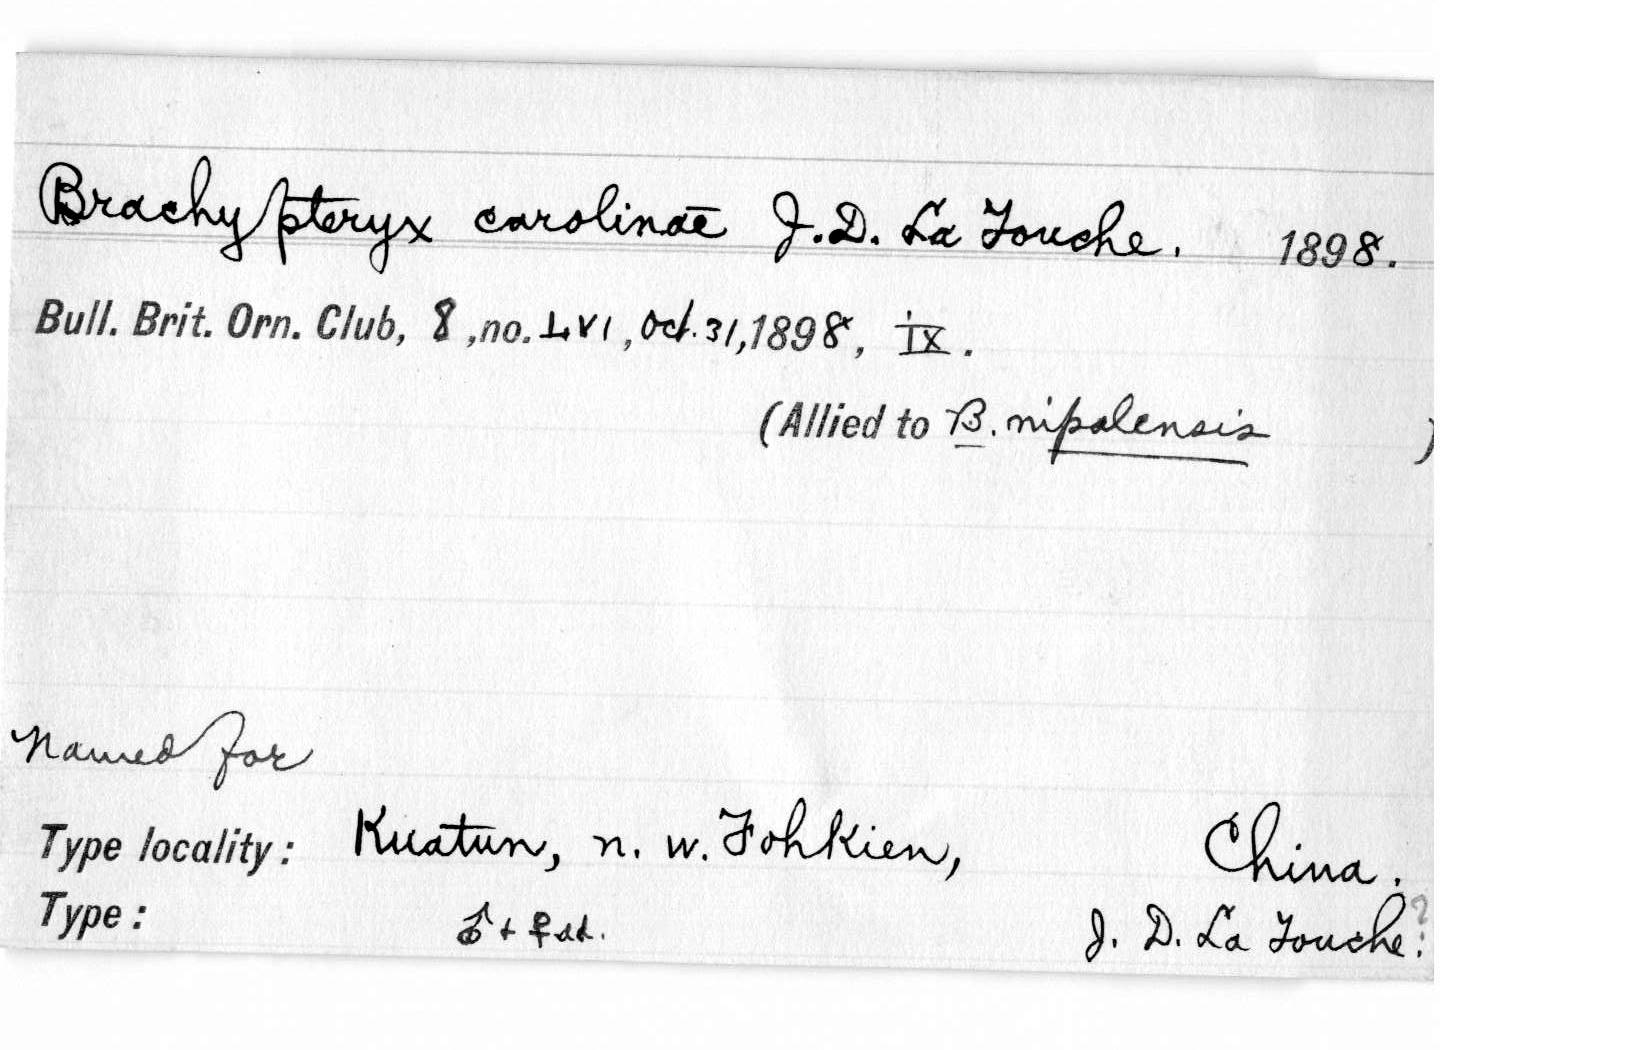 Brachypteryx carolinae J.D. La Touche. 1898.
Bull. Brit. Orn. Club, 8, no. LVI, Oct. 31, 1898, ix.
(Allied to B. nipalensis )
Named for
Type locality: Kuatun, n. w. Fohkien, China.
Type: ♂ + ♀ ad. J. D. La Touche?